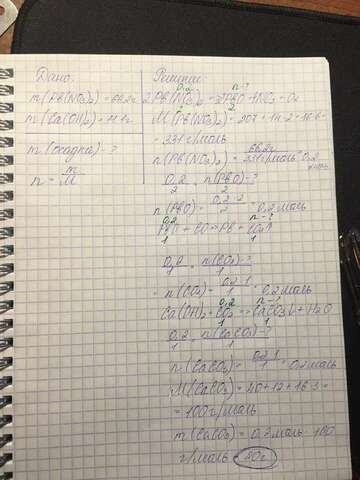 Дано:
m(Pb(NO₃)₂) = 66,2г
m(Ca(OH)₂) = 11,1г
m(осадка) - ?
n = m/M
Решение:
0,2 n-?
2Pb(NO₃)₂ = 2PbO + 4NO₂ + O₂
2 2
M(Pb(NO₃)₂) = 207 + 14·2 + 16·6 =
= 331 г/моль
n(Pb(NO₃)₂) = 66,2г / 331 г/моль = 0,2 моль
0,2/2 = n(PbO)-?/2
n(PbO) = 0,2·2/2 = 0,2 моль
0,2 n-?
PbO + CO => Pb + CO₂↑
1 1
0,2/1 = n(CO₂)-?/1
n(CO₂) = 0,2·1/1 = 0,2 моль
0,2 n-?
Ca(OH)₂ + CO₂ => CaCO₃↓ + H₂O
1 1
0,2/1 = n(CaCO₃)-?/1
n(CaCO₃) = 0,2·1/1 = 0,2 моль
M(CaCO₃) = 40 + 12 + 16·3 =
= 100 г/моль
m(CaCO₃) = 0,2 моль · 100
г/моль = 20г